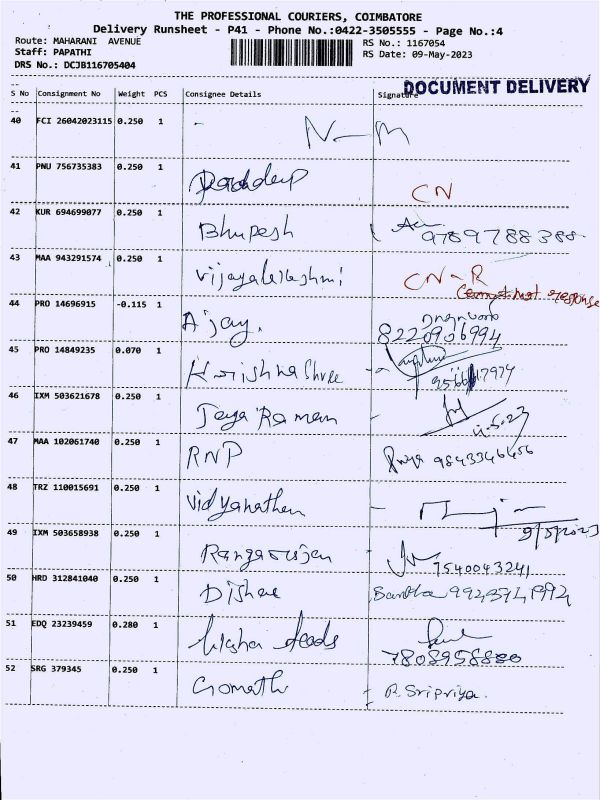 THE PROFESSIONAL COURIERS, COIMBATORE
Delivery Runsheet - P41 - Phone No.:0422-3505555 - Page No.:4
Route: MAHARANI AVENUE RS No.: 1167054
Staff: PAPATHI RS Date: 09-May-2023
DRS No.: DCJB116705404
DOCUMENT DELIVERY
S No Consignment No Weight PCS Consignee Details Signature
40 FCI 26042023115 0.250 1 -
41 PNU 756735383 0.250 1 CN
42 KUR 694699077 0.250 1 Bhupesh 9789788388
43 MAA 943291574 0.250 1 Vijayalakshmi CN-R
44 PRO 14696915 -0.115 1 Ajay. 8220906994
45 PRO 14849235 0.070 1 Krishna Shree
46 IXM 503621678 0.250 1 Jaya Raman -
47 MAA 102061740 0.250 1 RNP
48 TRZ 110015691 0.250 1 Vidyanathan -
49 IXM 503658938 0.250 1 Rangarajan - 7540043241
50 HRD 312841040 0.250 1
51 EDQ 23239459 0.280 1
52 SRG 379345 0.250 1 Gomathi - R. Sripriya.